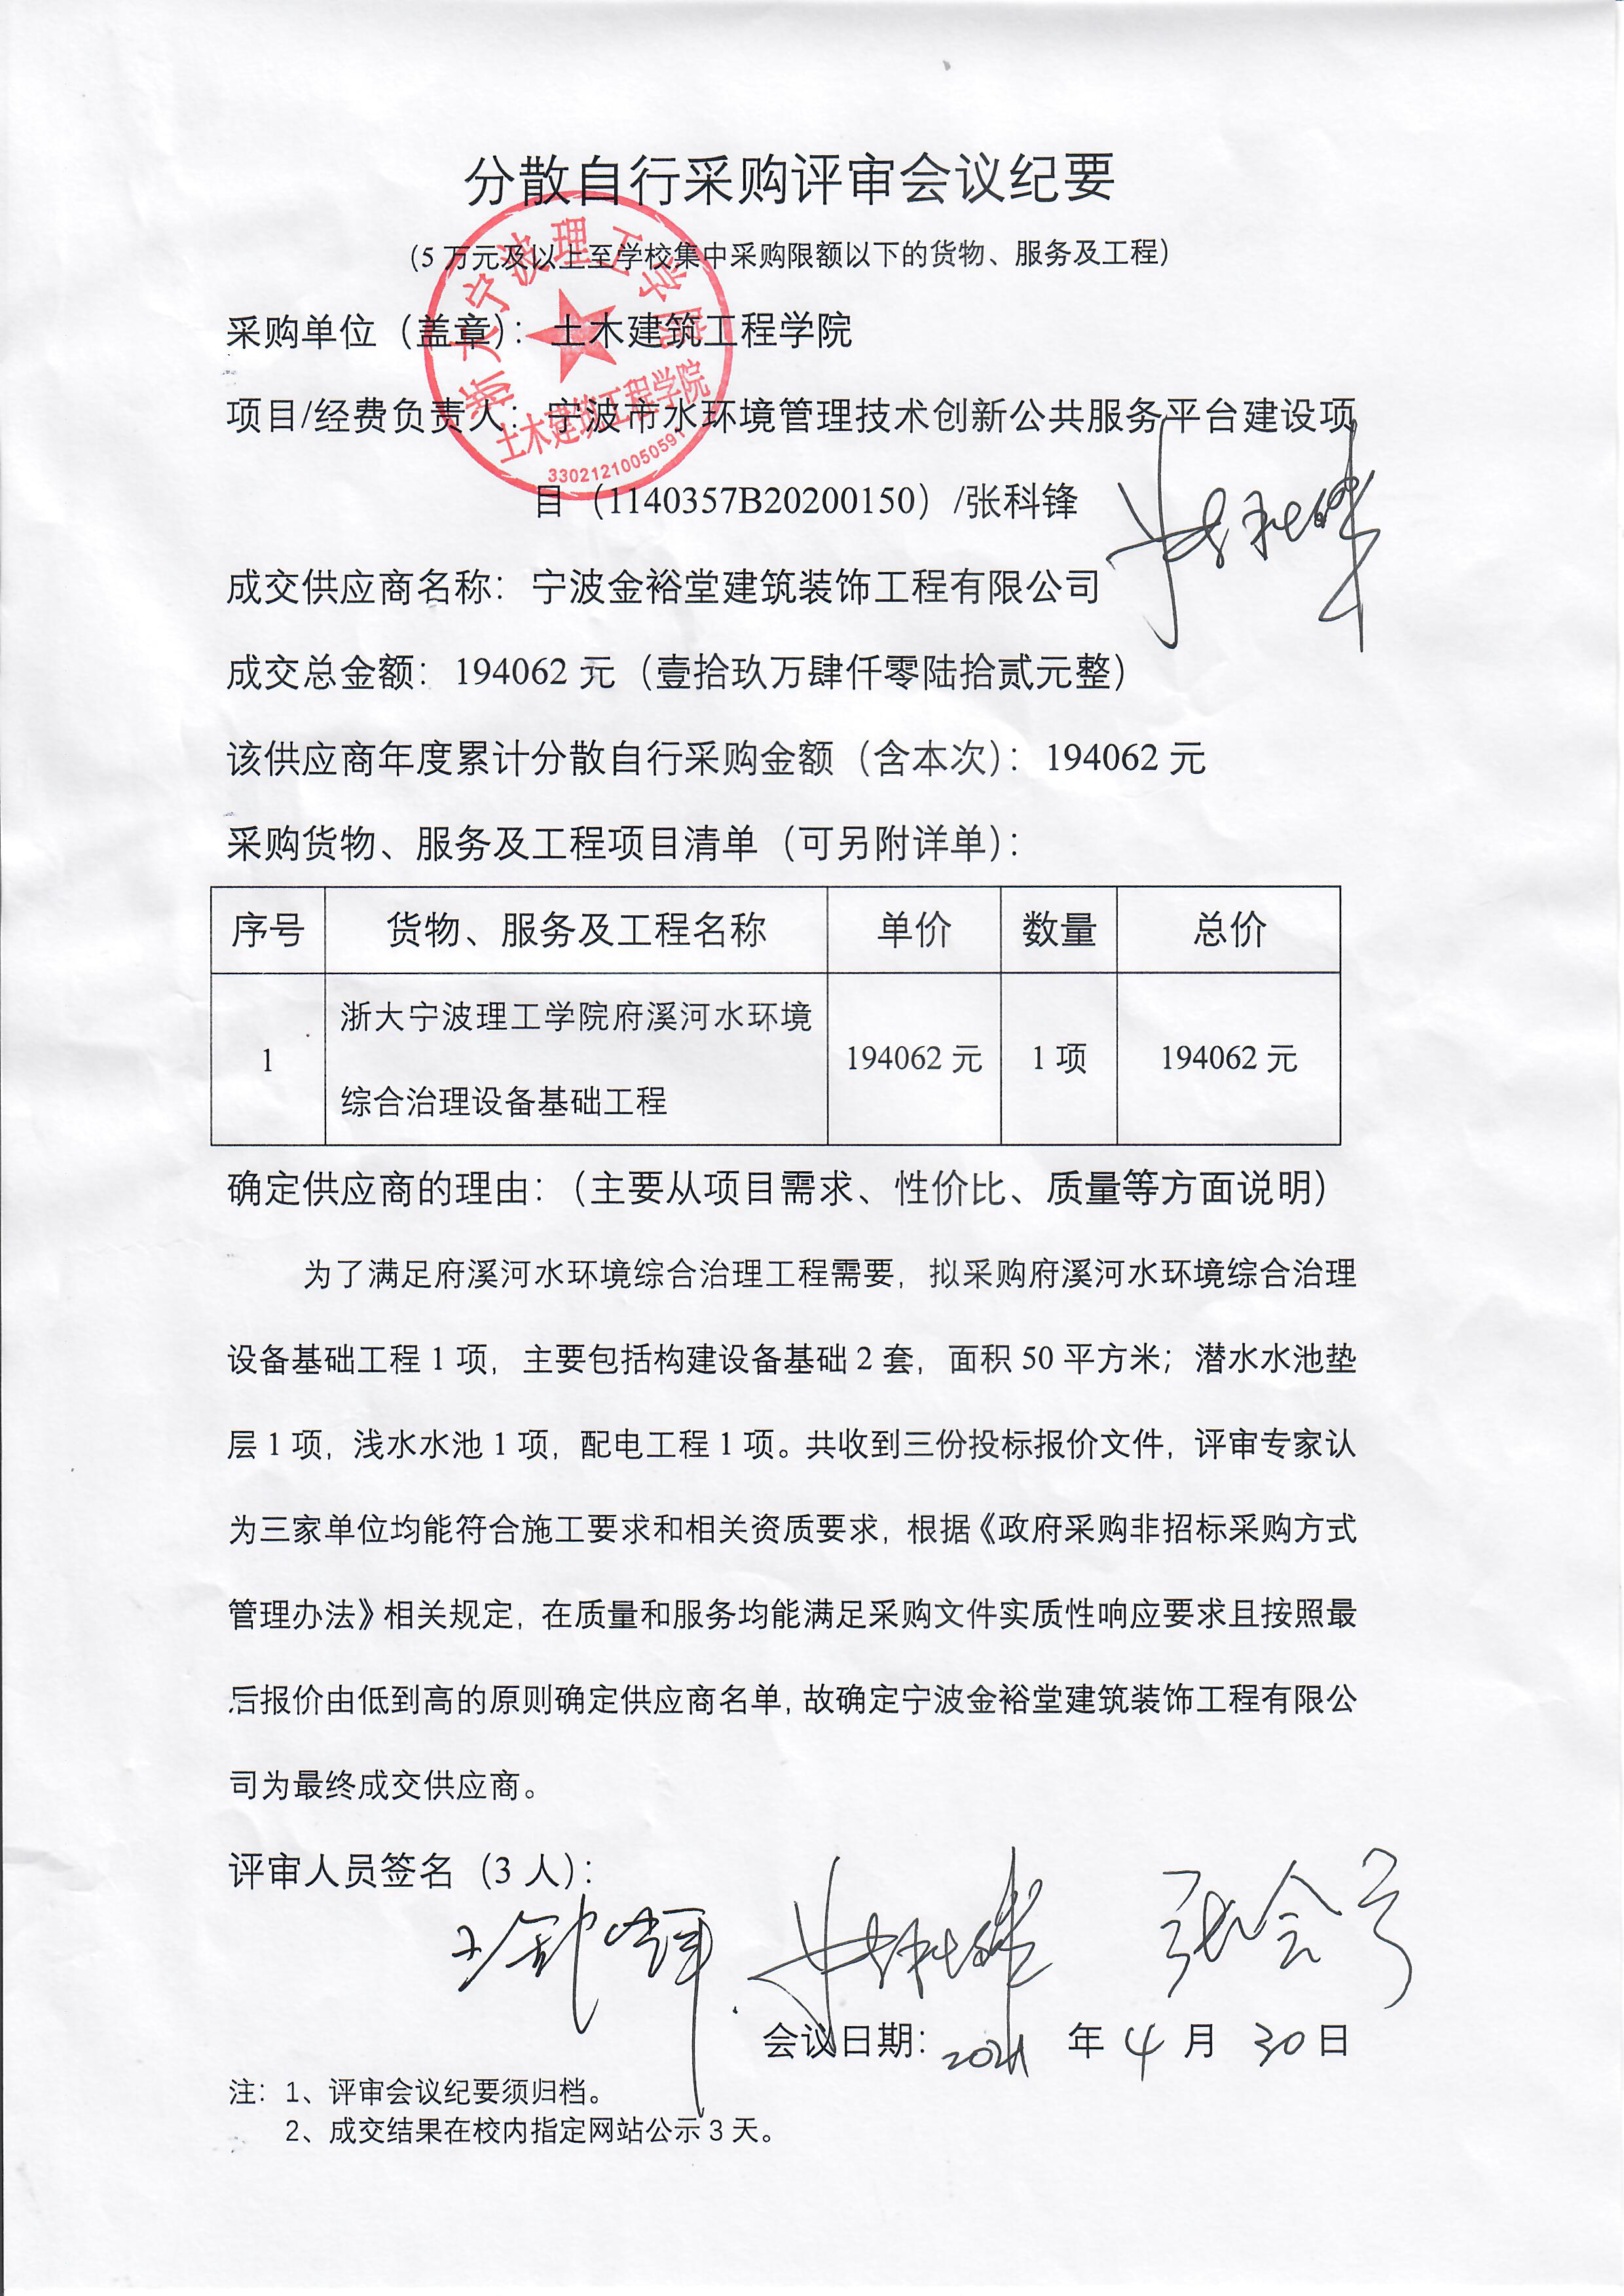 分散自行采购评审会议纪要
（5 万元及以上至学校集中采购限额以下的货物、服务及工程）
采购单位（盖章）： 土木建筑工程学院
浙大宁波理工学院
土木建筑工程学院
33021210050591
项目/经费负责人： 宁波市水环境管理技术创新公共服务平台建设项
目（1140357B20200150）/张科锋
张科锋
成交供应商名称： 宁波金裕堂建筑装饰工程有限公司
成交总金额： 194062 元（壹拾玖万肆仟零陆拾贰元整）
该供应商年度累计分散自行采购金额（含本次）： 194062 元
采购货物、服务及工程项目清单（可另附详单）：
序号 货物、服务及工程名称 单价 数量 总价
浙大宁波理工学院府溪河水环境
1 194062 元 1 项 194062 元
综合治理设备基础工程
确定供应商的理由：（主要从项目需求、性价比、质量等方面说明）
为了满足府溪河水环境综合治理工程需要，拟采购府溪河水环境综合治理
设备基础工程 1 项，主要包括构建设备基础 2 套，面积 50 平方米；潜水水池垫
层 1 项，浅水水池 1 项，配电工程 1 项。共收到三份投标报价文件，评审专家认
为三家单位均能符合施工要求和相关资质要求，根据《政府采购非招标采购方式
管理办法》相关规定，在质量和服务均能满足采购文件实质性响应要求且按照最
后报价由低到高的原则确定供应商名单，故确定宁波金裕堂建筑装饰工程有限公
司为最终成交供应商。
评审人员签名（3 人）：
张科锋
会议日期： 2021 年 4 月 30 日
注： 1、评审会议纪要须归档。
2、成交结果在校内指定网站公示 3 天。